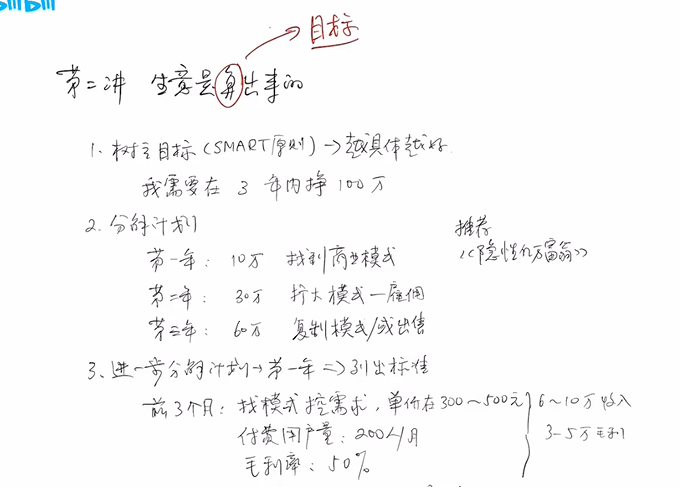 目标
第二讲 生意是算出来的
1. 树立目标(SMART原则)→越具体越好.
我需要在 3 年内挣 100万
2. 分解计划
第一年: 10万 找到商业模式
第二年: 30万 扩大模式—雇佣
第三年: 60万 复制模式/或出售
推荐
《隐性亿万富翁》
3. 进一步分解计划→第一年⇒列出标准
前3个月: 找模式挖需求, 单价在300~500元
付费用户量: 200人/月
毛利率: 50%
6~10万收入
3-5万毛利